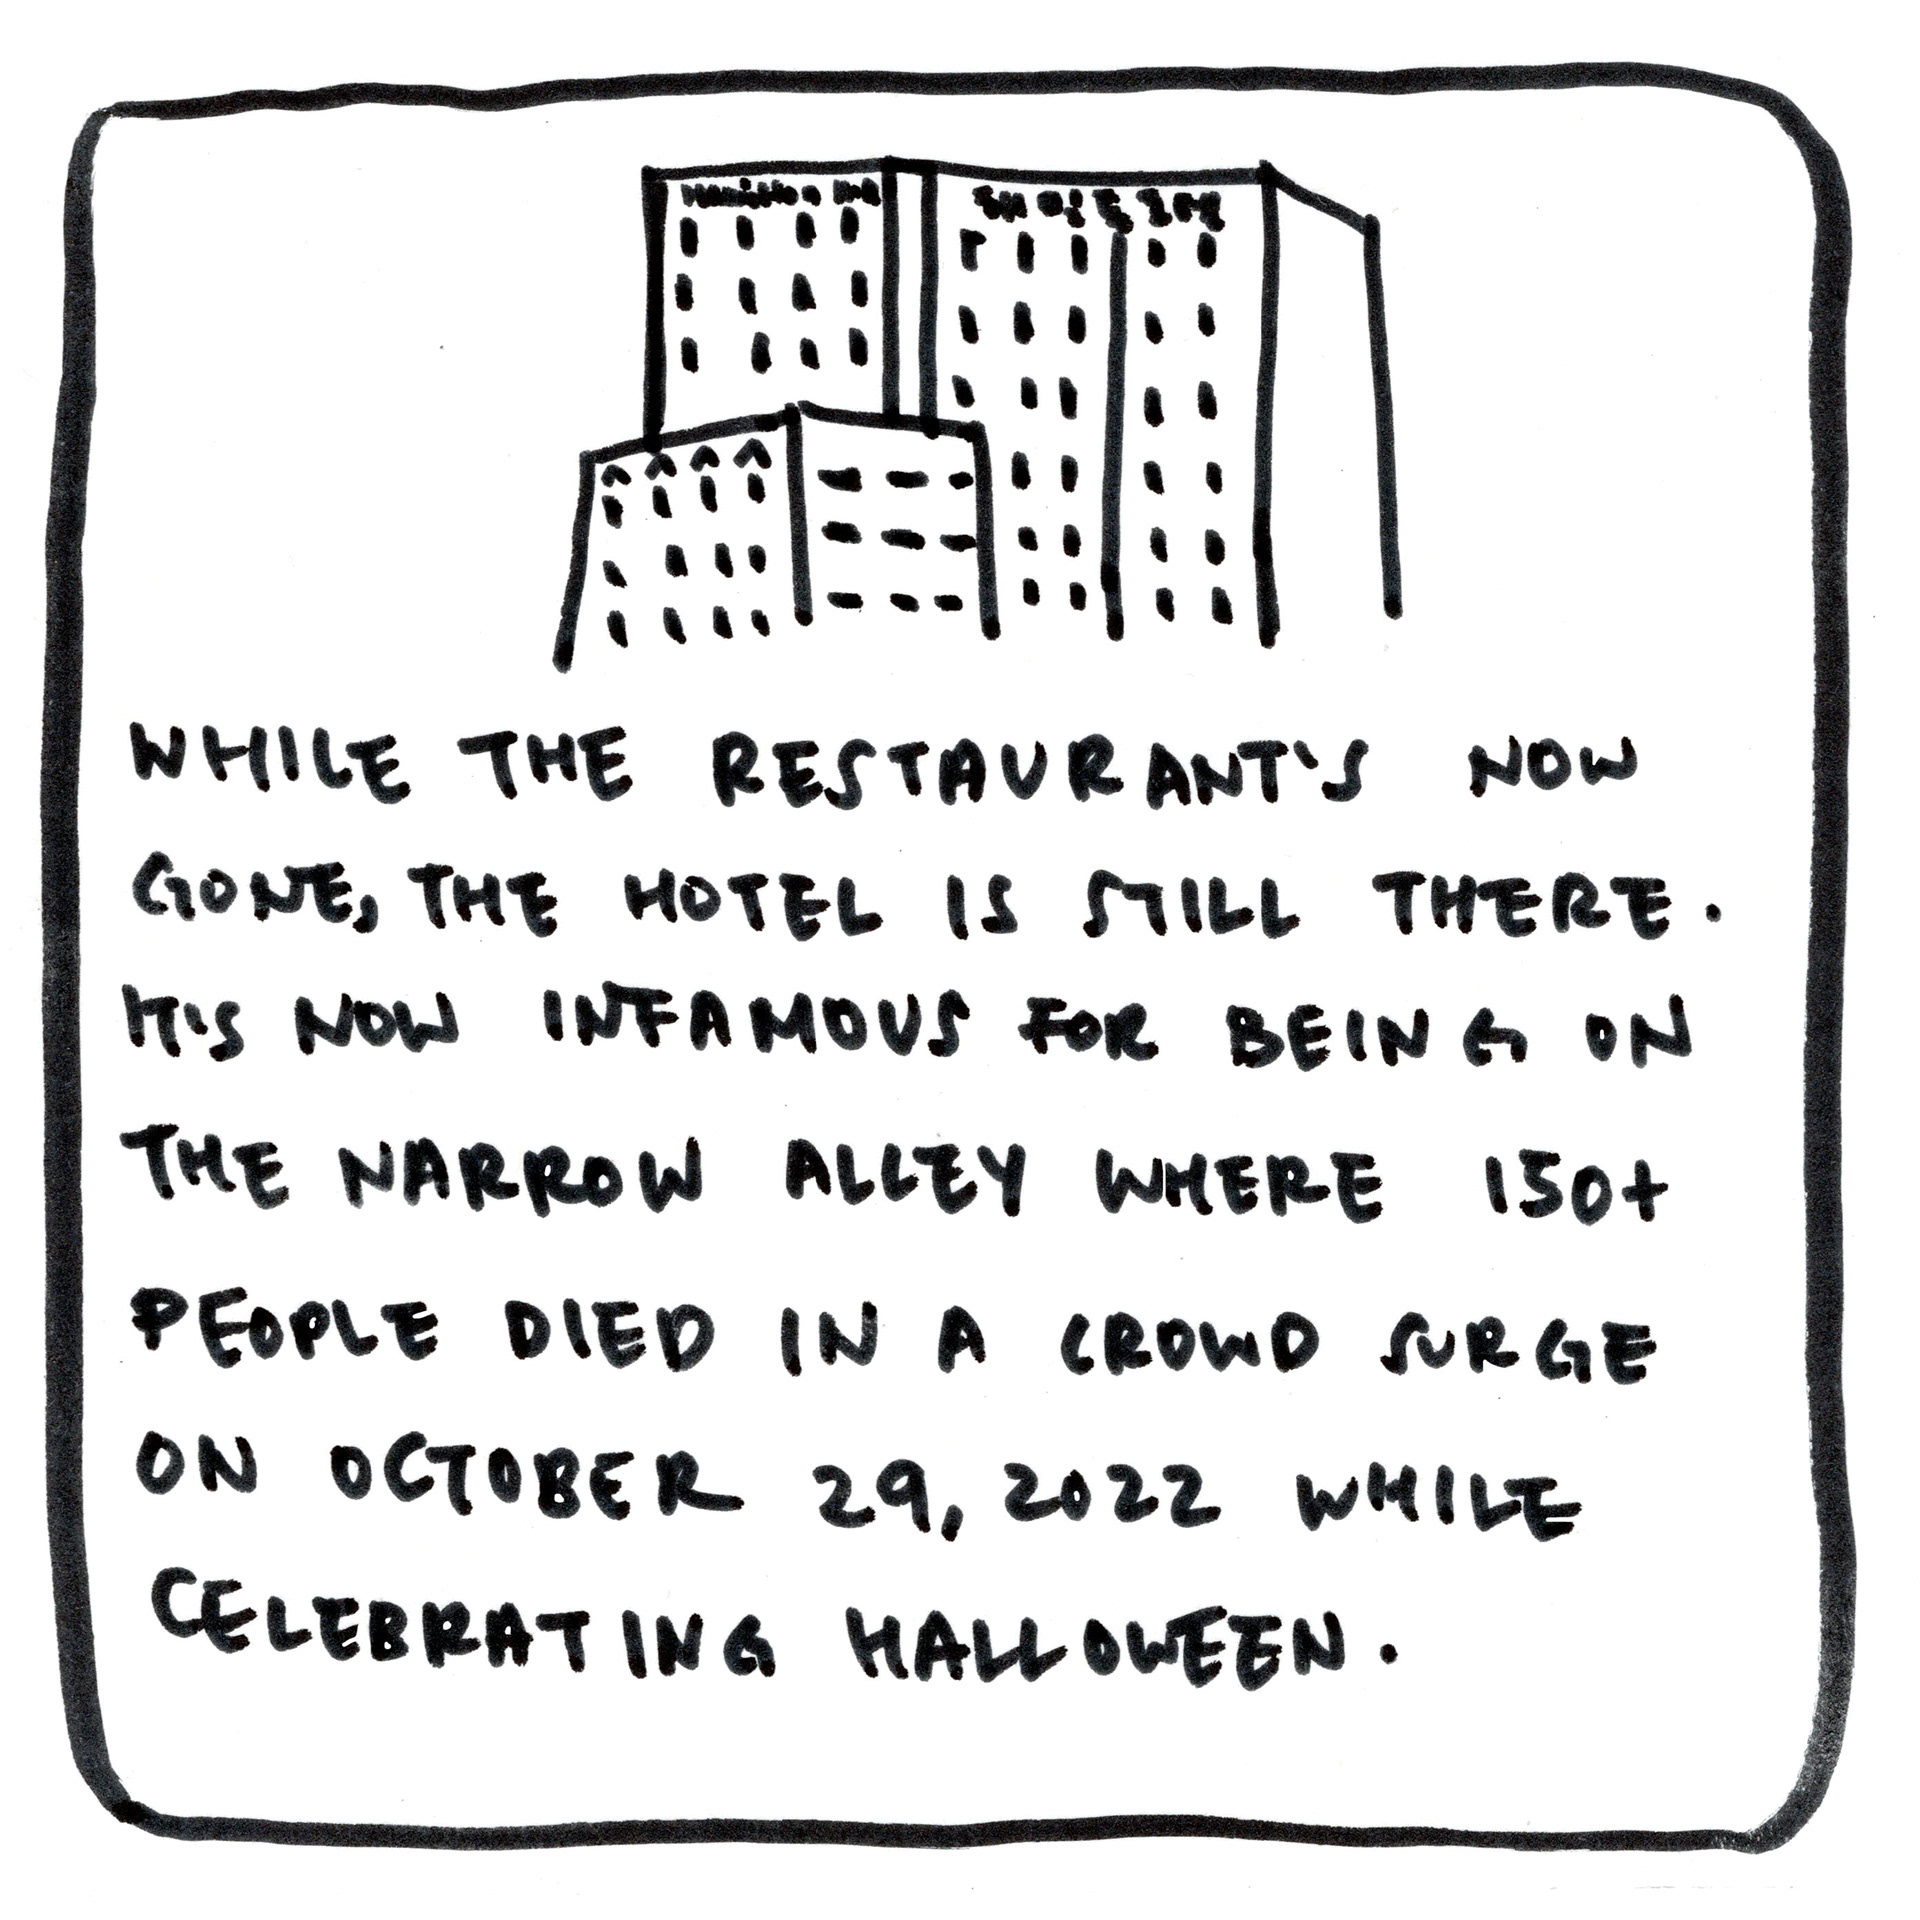 WHILE THE RESTAURANT'S NOW
GONE, THE HOTEL IS STILL THERE.
IT'S NOW INFAMOUS FOR BEING ON
THE NARROW ALLEY WHERE 150+
PEOPLE DIED IN A CROWD SURGE
ON OCTOBER 29, 2022 WHILE
CELEBRATING HALLOWEEN.